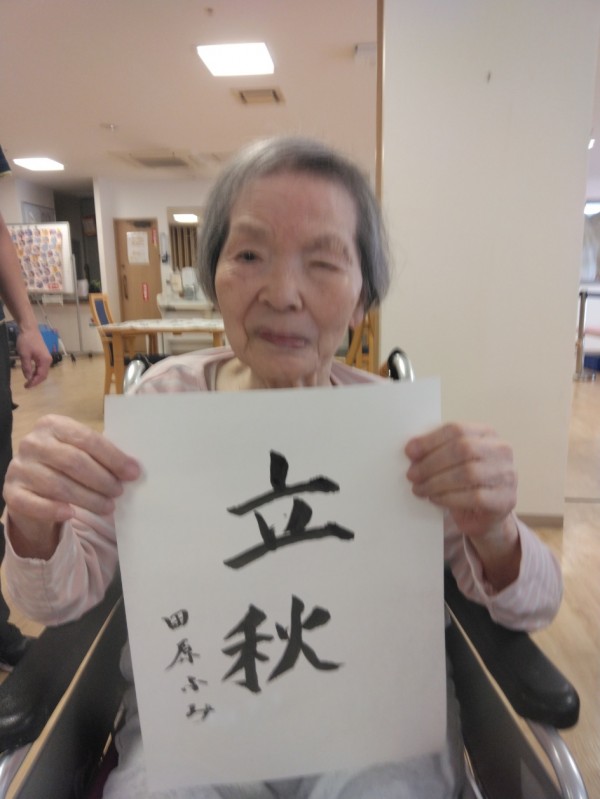 立秋
田原ふみ